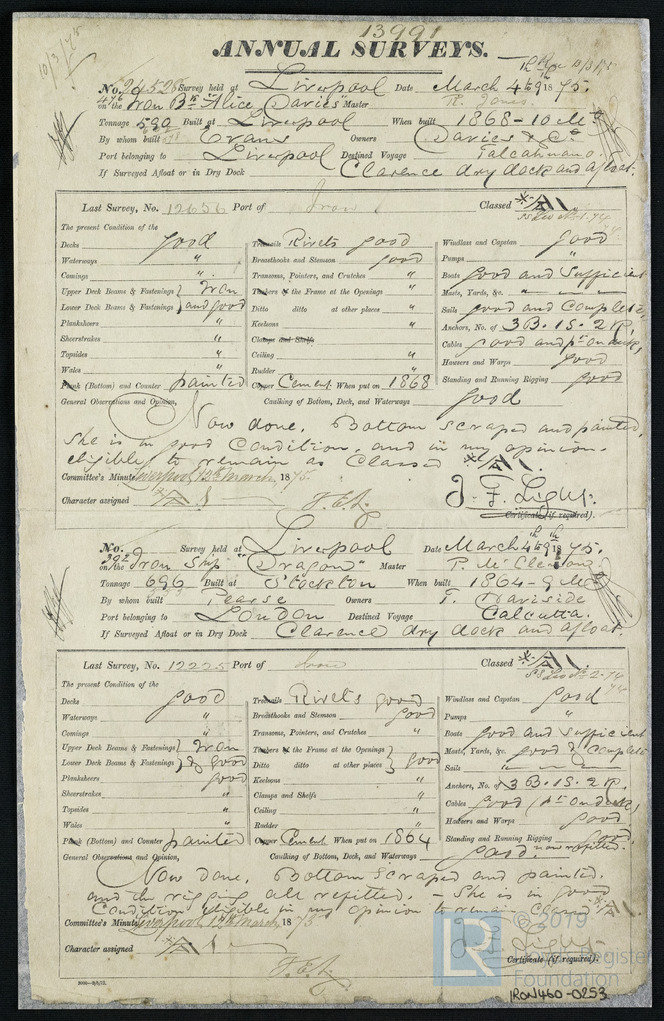 13991
ANNUAL SURVEYS.
10/3/75
No. 24528 Survey held at Liverpool Date March 4th & 9th 1875.
on the Iron Bk "Alice Davies" Master R. Jones
Tonnage 590 Built at Liverpool When built 1868-10 Mo
By whom built Evans Owners Davies & Co.
Port belonging to Liverpool Destined Voyage Talcahuano
If Surveyed Afloat or in Dry Dock Clarence dry dock and afloat.
Last Survey, No. 12656 Port of Iron Classed A1
The present Condition of the
Decks good Treenails Rivets good Windlass and Capstan good
Waterways " Breasthooks and Stemson good Pumps "
Comings " Transoms, Pointers, and Crutches " Boats good and Sufficient
Upper Deck Beams & Fastenings } Iron Timbers of the Frame at the Openings " Masts, Yards, &c. "
Lower Deck Beams & Fastenings } and good Ditto ditto at other places " Sails good and Complete
Planksheers " Keelsons " Anchors, No. of 3 B. 1 S. 2 K.
Sheerstrakes " Clamps and Shelfs Cables good and pt on deck,
Topsides " Ceiling " Hawsers and Warps good
Wales " Rudder " Standing and Running Rigging good
Plank (Bottom) and Counter painted Copper Cement When put on 1868
General Observations and Opinion, Caulking of Bottom, Deck, and Waterways good
Now done, Bottom scraped and painted,
She is in good Condition, and in my opinion
eligible to remain as Classed A1.
Committee's Minute Liverpool, 12th March, 1875
Character assigned A1 J. F. Light.
Certificate (if required).
No. Survey held at Liverpool Date March 4th & 9th 1875.
on the Iron Ship "Dragon" Master
Tonnage 696 Built at Stockton When built 1864-9 Mo
By whom built Pearse Owners T. Dariside
Port belonging to London Destined Voyage Calcutta.
If Surveyed Afloat or in Dry Dock Clarence dry dock and afloat.
Last Survey, No. 12225 Port of Iron Classed A1
The present Condition of the
Decks good Treenails Rivets good Windlass and Capstan good
Waterways " Breasthooks and Stemson good Pumps "
Comings " Transoms, Pointers, and Crutches " Boats good and sufficient
Upper Deck Beams & Fastenings } Iron Timbers of the Frame at the Openings } Masts, Yards, &c. good & Complete
Lower Deck Beams & Fastenings } & good Ditto ditto at other places } good Sails "
Planksheers good Keelsons " Anchors, No. of 3 B. 1 S. 2 K.
Sheerstrakes " Clamps and Shelfs " Cables good (pt on deck)
Topsides " Ceiling " Hawsers and Warps good
Wales " Rudder " Standing and Running Rigging good
Plank (Bottom) and Counter painted Copper Cement When put on 1864 now refitted.
General Observations and Opinion, Caulking of Bottom, Deck, and Waterways good.
Now done, Bottom scraped and painted,
and the rigging all refitted. - She is in good
Condition eligible in my opinion to remain Classed A1
Committee's Minute Liverpool, 12th March, 1875
Character assigned A1 J. F. Light.
Certificate (if required).
© 2019
LR
Lloyd's Register
Foundation
IRON460-0253